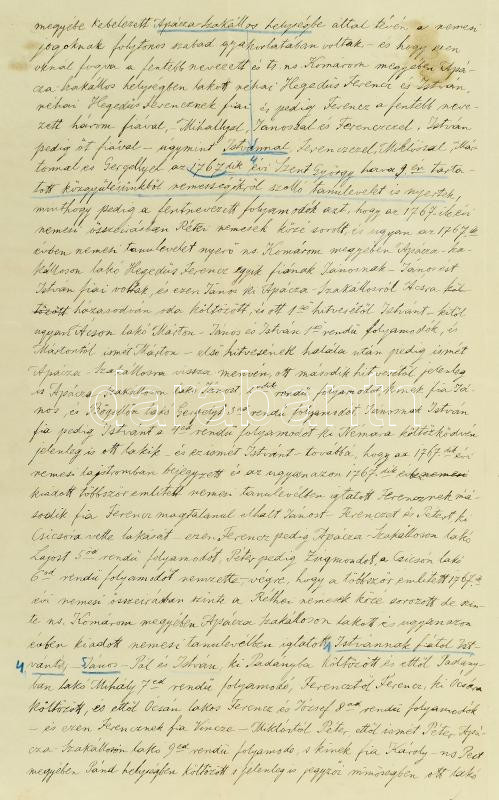 megyébe kebelezett Apácza-Szakállos helységbe által tévén, a nemesi
jogoknak folytonos szabad gyakorlatában voltak – és hogy ezen
oknál fogva a fentebb nevezett és ts. ns. Komárom megyében Apá-
cza-Szakállos helységben lakott néhai Hegedüs Ferencz és István,
néhai Hegedüs Ferencznek fiai és, pedig Ferencz a fentebb neve-
zett három fiával, – Mihállyal, Jánossal és Ferenczczel, István
pedig öt fiával – úgymint Istvánnal, Ferenczczel, Miklóssal, Már-
tonnal és Gergellyel az 1767dik évi Szent György hava 9én tarta-
tott közgyülésünkből nemességökről szólló tanulevelet is nyertek,
minthogy pedig a fentnevezett folyamodók azt, hogy az 1767ik évi
nemesi összeirásban Réthi nemesek közé sorolt, és ugyan az 1767ik
évben nemesi tanulevelet nyerő ns. Komárom megyében Apácza-Sza-
kálloson lakó Hegedüs Ferencz egyik fiának Jánosnak – János és
István fiai voltak, és ezen János ki Apácza-Szakállosról Acsra köl-
tözött házasodván oda költözött, és ott 1ső hitvesétől Istvánt – kitől
ugyan Acson lakó Márton – János és István 1ső rendü folyamodók, és
Mártontól ismét Márton – első hitvesének halála után pedig ismét
Apácza-Szakállosra vissza menvén, ott második hitvesétől jelenleg
is Apácza Szakálloson lakó Jánost 2dik rendü folyamodót, kinek fia Já-
nos, és Bögellön lakó Gergelyt 3ad rendü folyamodót Jánosnak István
fia pedig Istvánt a 4ed rendü folyamodót ki Nemára költözködvén
jelenleg is ott lakik – és ez ismét Istvánt – továbbá, hogy az 1767ik évi
nemesi lajstromban bejegyzett és az ugyanazon 1767dik
kiadott többször emlitett nemesi tanulevélben igtatott Ferencznek má-
sodik fia Ferencz magtalanul elhalt Jánost – Ferenczet és Pétert, ki
Csicsóra vette lakását – ezen Ferencz pedig Apácza-Szakálloson lakó
Lajost 5öd rendü folyamodót, Péter pedig Zsigmondot, a Csicsón lakó
6od rendü folyamodót nemzette – végre, hogy a többször emlitett 1767ik
évi nemesi összeirásban szinte a Réthei nemesek közé sorozott de szin-
te ns. Komárom megyében Apácza Szakáloson lakott és ugyanazon
évben kiadott nemesi tanulevélben igtatott Istvánnak fiától Ist-
vántól János – Pál és István, ki Padányba költözött és ettől Padány-
ban lakó Mihály 7ed rendü folyamodó, Ferencztől Ferencz, ki Ócsára
költözött, és ettől Ócsán lakos Ferencz és József 8ad rendü folyamodók
– és ezen Ferencznek fia Vincze – Miklóstól Péter, ettől ismét Péter, Apá-
cza-Szakálloson lakó 9ed rendü folyamodó, s kinek fia Károly – ns. Pest
megyében Pánd helységben költözött s jelenleg is jegyzői minőségben ott lakó
4. 4. 4. 5.
darabanth